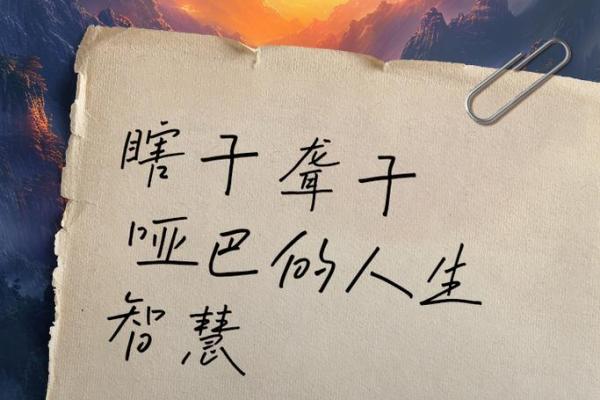 瞎子聋子
哑巴的人生
智慧